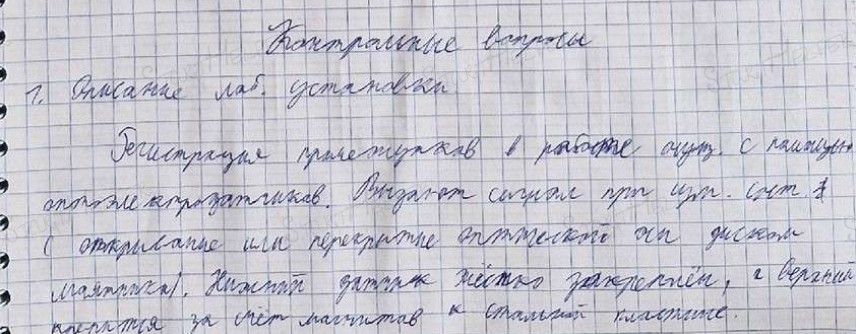 Контрольные вопросы
1. Описание лаб. установки
Регистрация промежутков в работе осущ. с помощью
оптоэлектродатчиков. Выдают сигнал при изм. сост.
(открывание или перекрытие оптической оси диском
маятника). Нижний датчик жёстко закреплён, а верхний
крепится за счёт магнитов к стальной пластине.